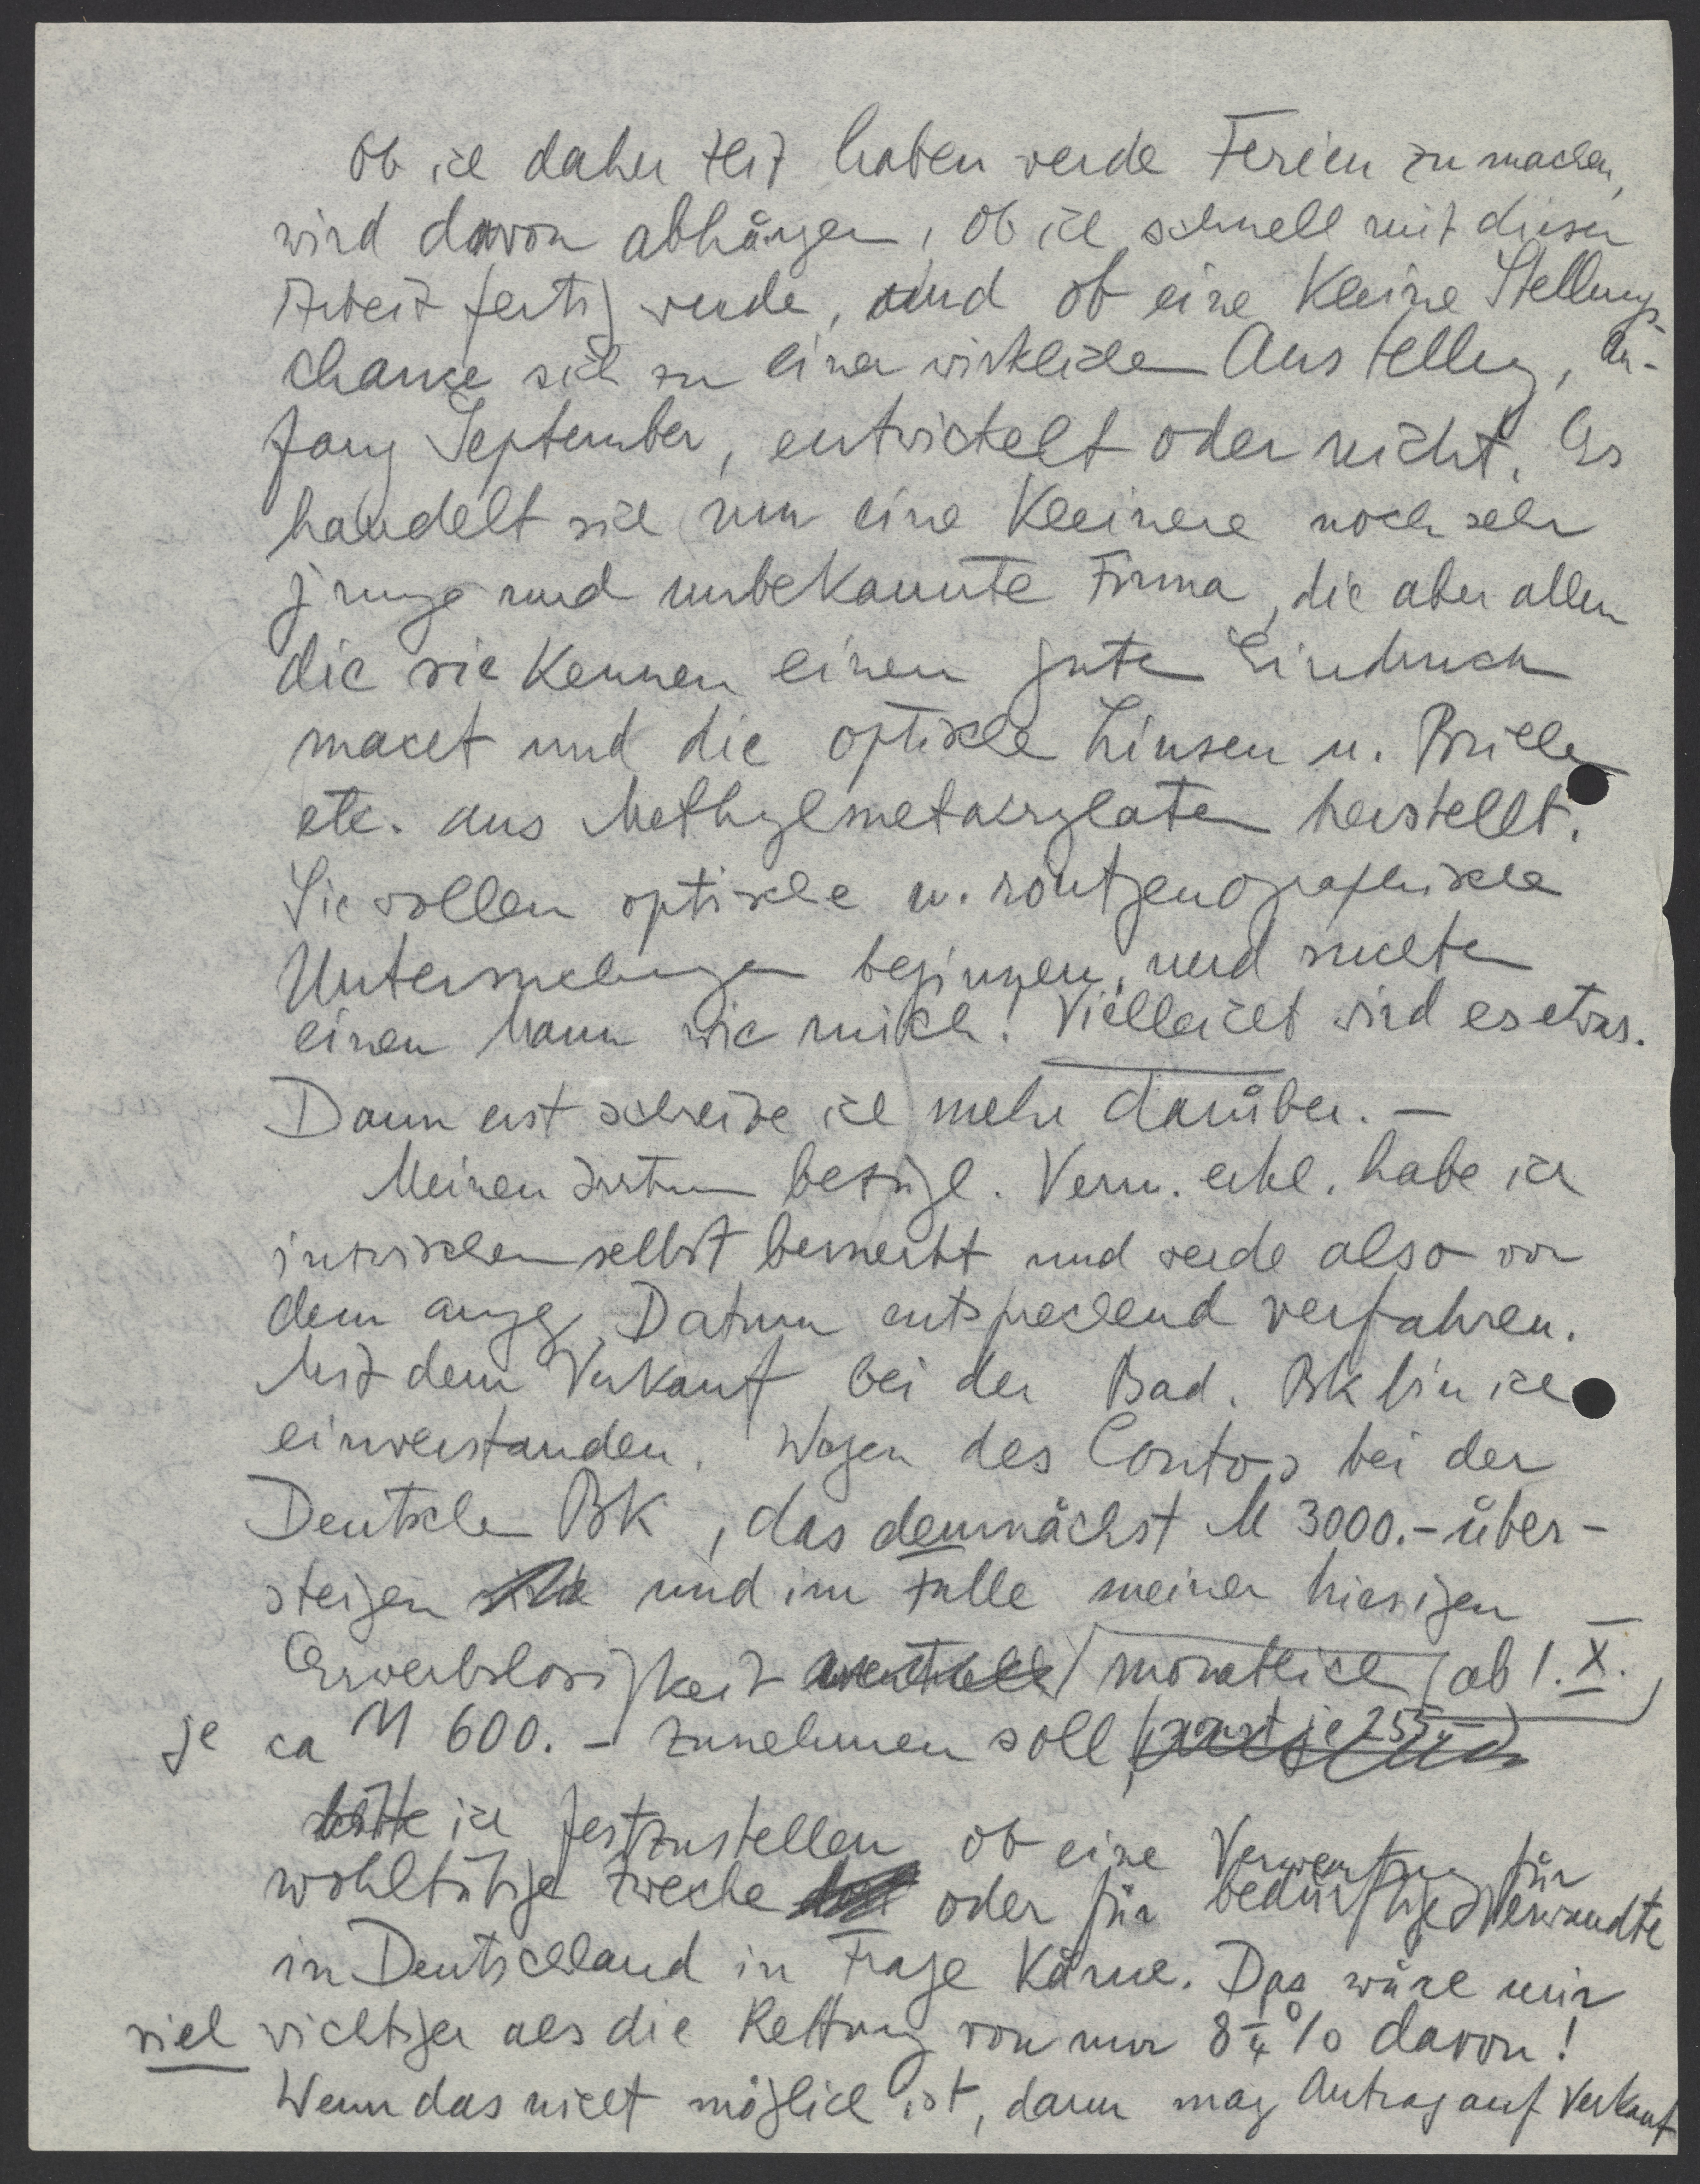 Ob ich daher Zeit haben werde Ferien zu machen,
wird davon abhängen, ob ich schnell mit dieser
Arbeit fertig werde, und ob eine kleine Stellungs-
chance sich zu einer wirklichen Anstellung, An-
fang September, entwickelt oder nicht. Es
handelt sich um eine kleinere noch sehr
junge und unbekannte Firma, die aber allen
die sie kennen einen guten Eindruck
macht und die optische Linsen u. Brillen
etc. aus Methylmetakrylaten herstellt.
Sie wollen optische u. röntgenographische
Untersuchungen beginnen, und suchten
einen Mann wie mich! Vielleicht wird es etwas.
Dann erst schreibe ich mehr darüber. —
Meinen Irrtum bezügl. Verm. erkl. habe ich
inzwischen selbst bemerkt und werde also vor
dem angeg. Datum entsprechend verfahren.
Mit dem Verkauf bei der Bad. Bk bin ich
einverstanden. Wegen des Conto's bei der
Deutschen Bk, das demnächst M 3000.- über-
steigen und im Falle meiner hiesigen
Erwerbslosigkeit eventuell monatlich (ab 1. X.)
je ca M 600.- zunehmen soll
bitte ich festzustellen ob eine Verwertung für
wohltätige Zwecke oder für bedürftige Verwandte
in Deutschland in Frage käme. Das wäre mir
viel wichtiger als die Rettung von nur 8 ¼ % davon!
Wenn das nicht möglich ist, dann mag Antrag auf Verkauf